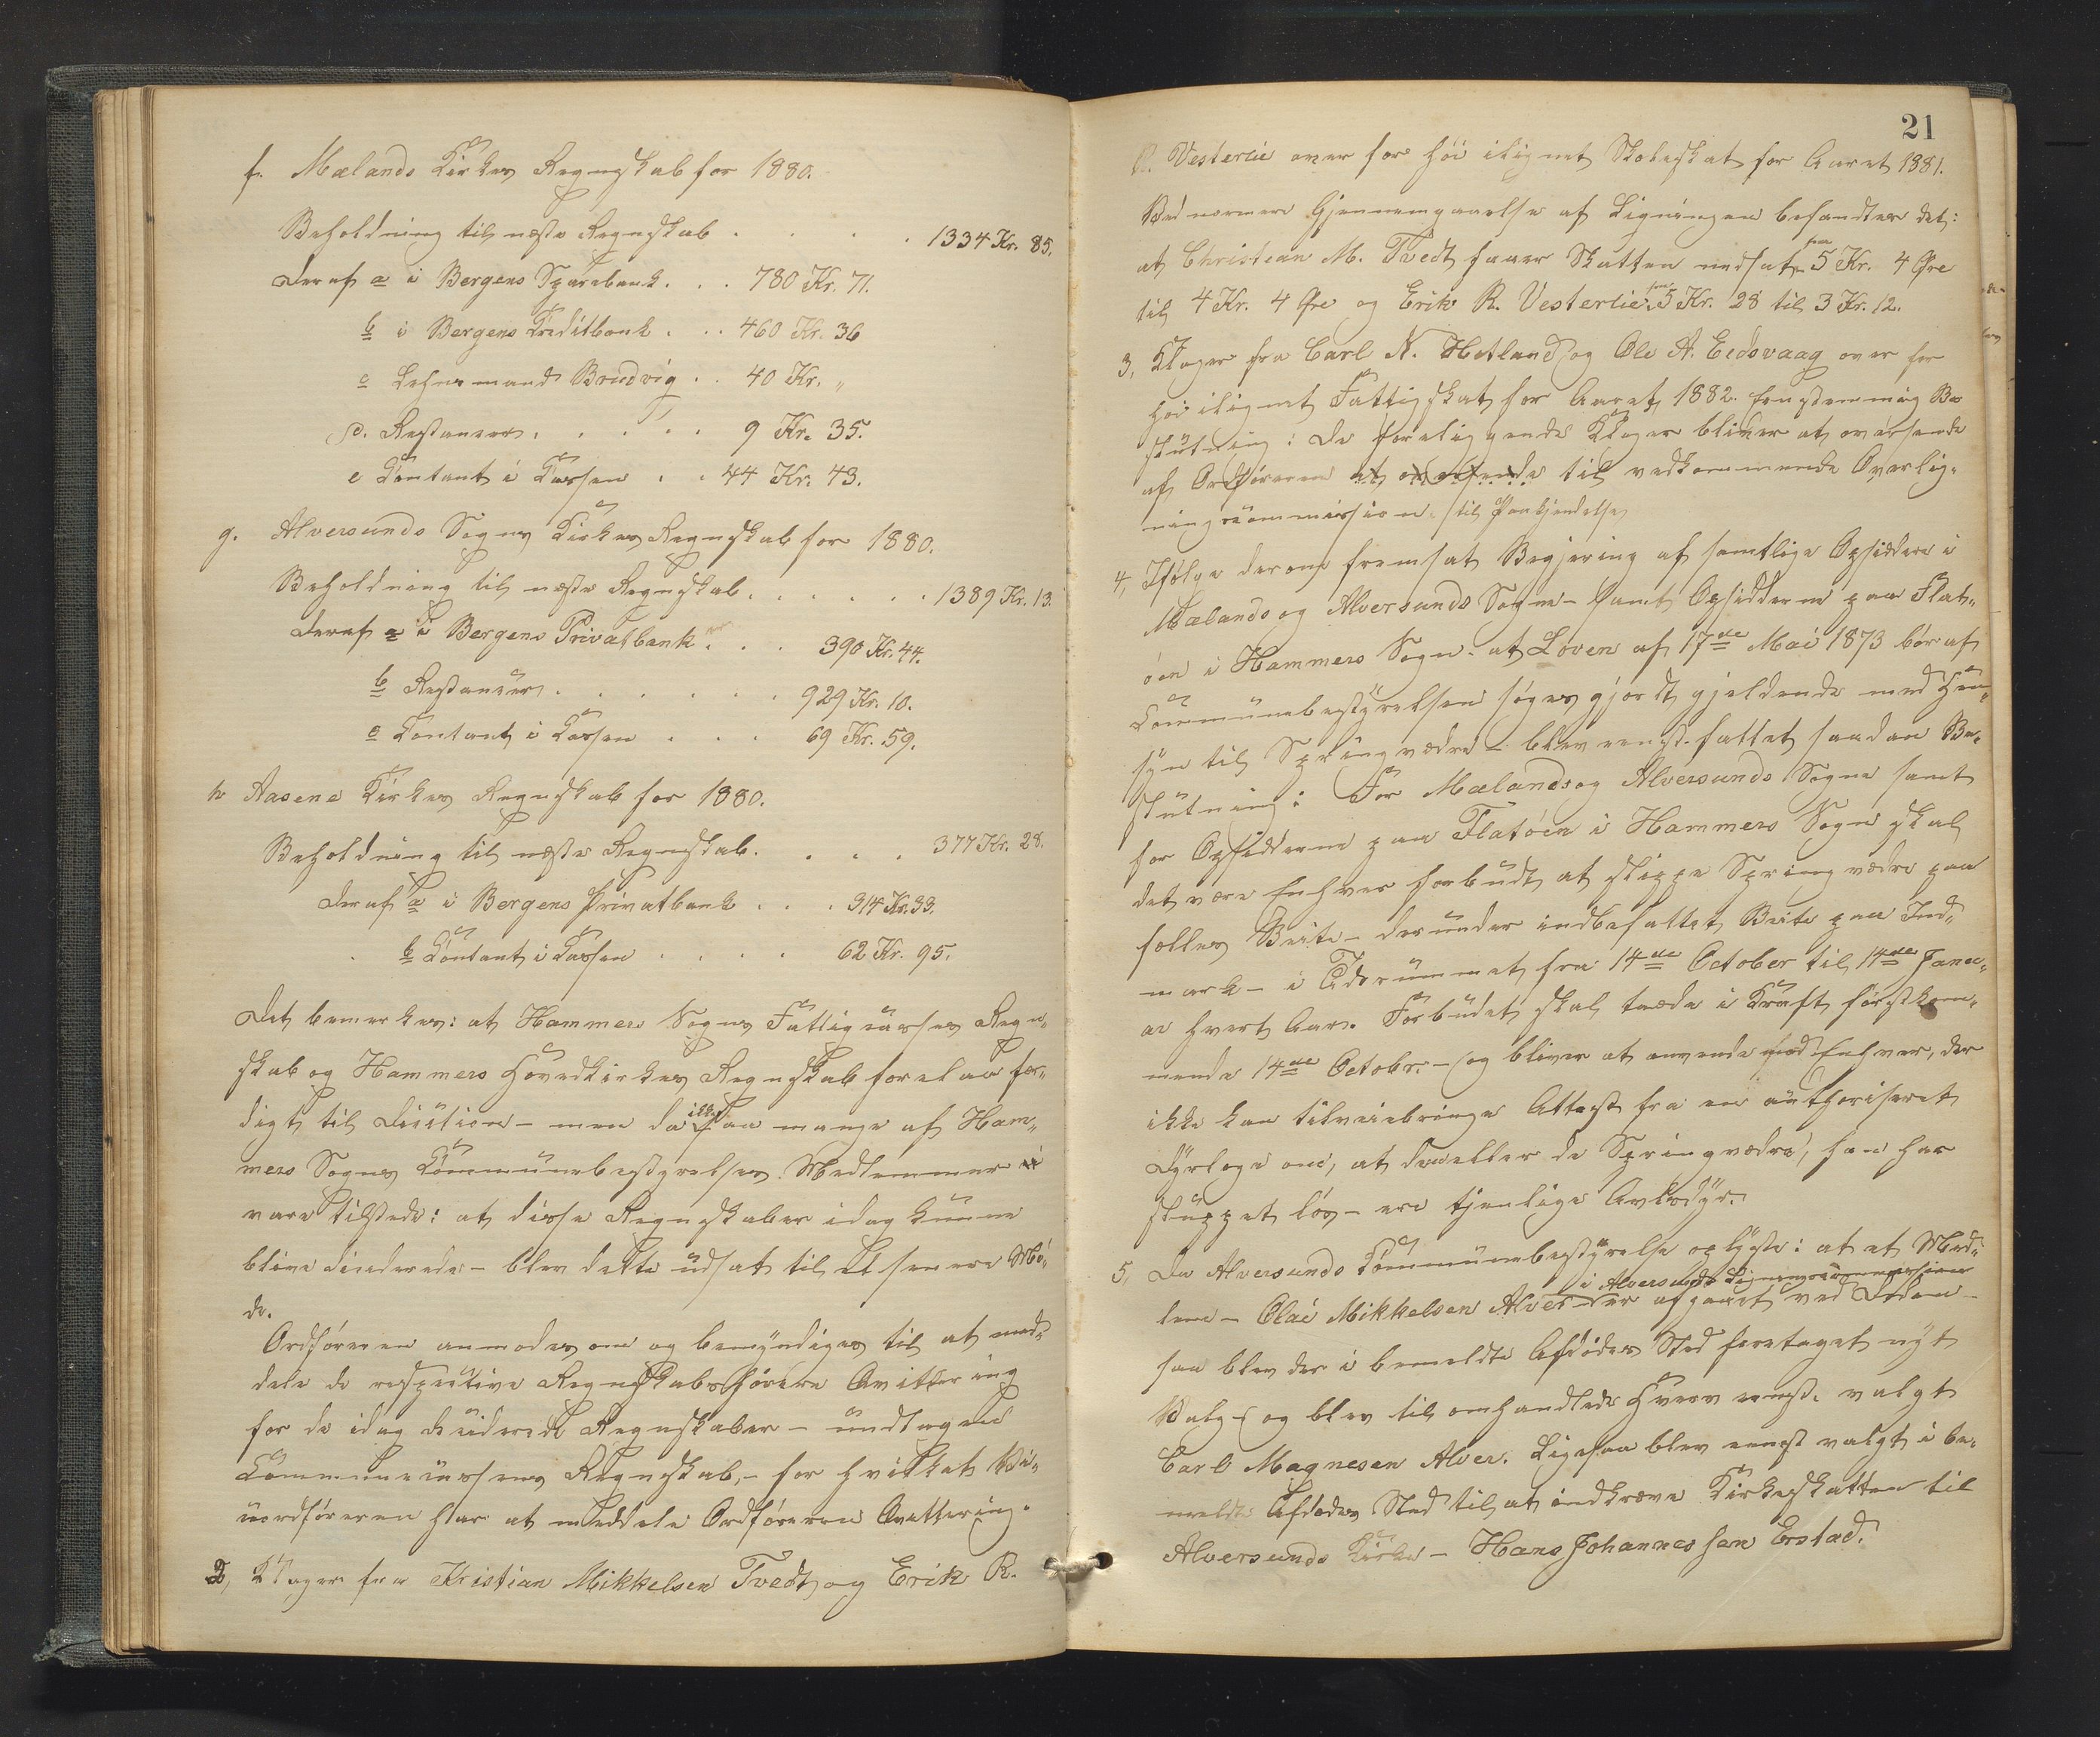 f. Mælands Kirkes Regnskab for 1880.
Beholdning til næste Regnskab . . . . 1334 Kr. 85.
deraf a i Bergens Sparebank . . . 780 Kr. 71.
b i Bergens Creditbank . . . 460 Kr. 36
c Lehnsmand Brudvig . . 40 Kr. „
d. Restancer . . . . . 9 Kr. 35.
e Contant i Cassen . . 44 Kr. 43.
g. Alversunds Sogns Kirkes Regnskab for 1880.
Beholdning til næste Regnskab . . . . . . 1389 Kr. 13.
deraf a i Bergens Privatbank . . . 390 Kr. 44.
b Restancer . . . . . . . 929 Kr. 10.
c Contant i Cassen . . . . 69 Kr. 59.
h Aasene Kirkes Regnskab for 1880.
Beholdning til næste Regnskab. . . . . 377 Kr. 28.
deraf a i Bergens Privatbank . . . 314 Kr. 33.
b Contant i Cassen . . . . 62 Kr. 95.
Det bemerkes: at Hammers Sogns Fattigcasses Regn„
skab og Hammers Hovedkirkes Regnskab forelaa fær„
digt til Decision – men da ikke saa mange af Ham„
mers Sogns Communebestyrelses Medlemmer
vare tilstede: at disse Regnskaber idag kunne
blive deciderede – blev dette udsat til et senere Mö„
de.
Ordföreren anmodes om og bemyndiges til at med„
dele de respective Regnskabsförere Qvittering
for de idag deciderede Regnskaber – undtagen
Communecassens Regnskab, – for hvilket Vi„
ceordföreren har at meddele Ordföreren Qvittering.
2, Klager fra Kristian Mikkelsen Tvedt og Erik R.
21
R. Vesterlie over for höi ilignet Skoleskat for Aaret 1881.
Ved nærmere Gjennemgaaelse af Ligningen befandtes det:
at Christian M. Tvedt faaer Skatten nedsat fra 5 Kr. 4 Øre
til 4 Kr. 4 Øre og Erik R. Vesterlie fra 5 Kr. 28 til 3 Kr. 12.
3, Klager fra Carl N. Hetland og Ole A. Eidsvaag over for
höi ilignet Fattigskat for Aaret 1882. Enstemmig Be
slutning: De foreliggende Klager bliver at oversende
af Ordföreren at oversende til vedkommende Overlig„
ningscommission til Paakjendelse
4, Ifölge derom fremsat Begjering af samtlige Opsiddere i
Mælands og Alversunds Sogne – samt Opsidderne paa Flat„
öen i Hammers Sogn: at Loven af 17de Mai 1873 bör af
Communebestyrelsen söges gjordt gjeldende med Hen„
syn til Springvædre – blev eenst. fattet saadan Be„
slutning: For Mælands og Alversunds Sogne samt
for Opsidderne paa Flatöen i Hammers Sogn skal
det være Enhver forbudt at slippe Springvædre paa
fælles Beite – derunder indbefattet Beite paa Ind„
mark – i Tidsrummet fra 14de October til 14de Janu„
ar hvert Aar. Forbudet skal træde i Kraft förstkom„
mende 14de Octobr. – og bliver at anvende mod Enhver, der
ikke kan tilveiebringe Attest fra en authoriseret
Dyrlæge om, at den eller de Springvædre, han har
sluppet lös – ere tjenlige Avlsdyr.
5, Da Alversunds Communebestyrelse oplyste: at et Med„
lem i Alversunds Ligningscommission – Olai Mikkelsen Alver – er afgaaet ved Döden –
saa blev der i bemeldte Afdödes Sted foretaget nyt
Valg – og blev til omhandlede Hverv eenst. valgt
Carl Magnesen Alver. Ligesaa blev eenst valgt i be„
meldte Afdödes Sted til at indkræve Kirkeskatten til
Alversunds Kirke – Hans Johannessen Erstad.